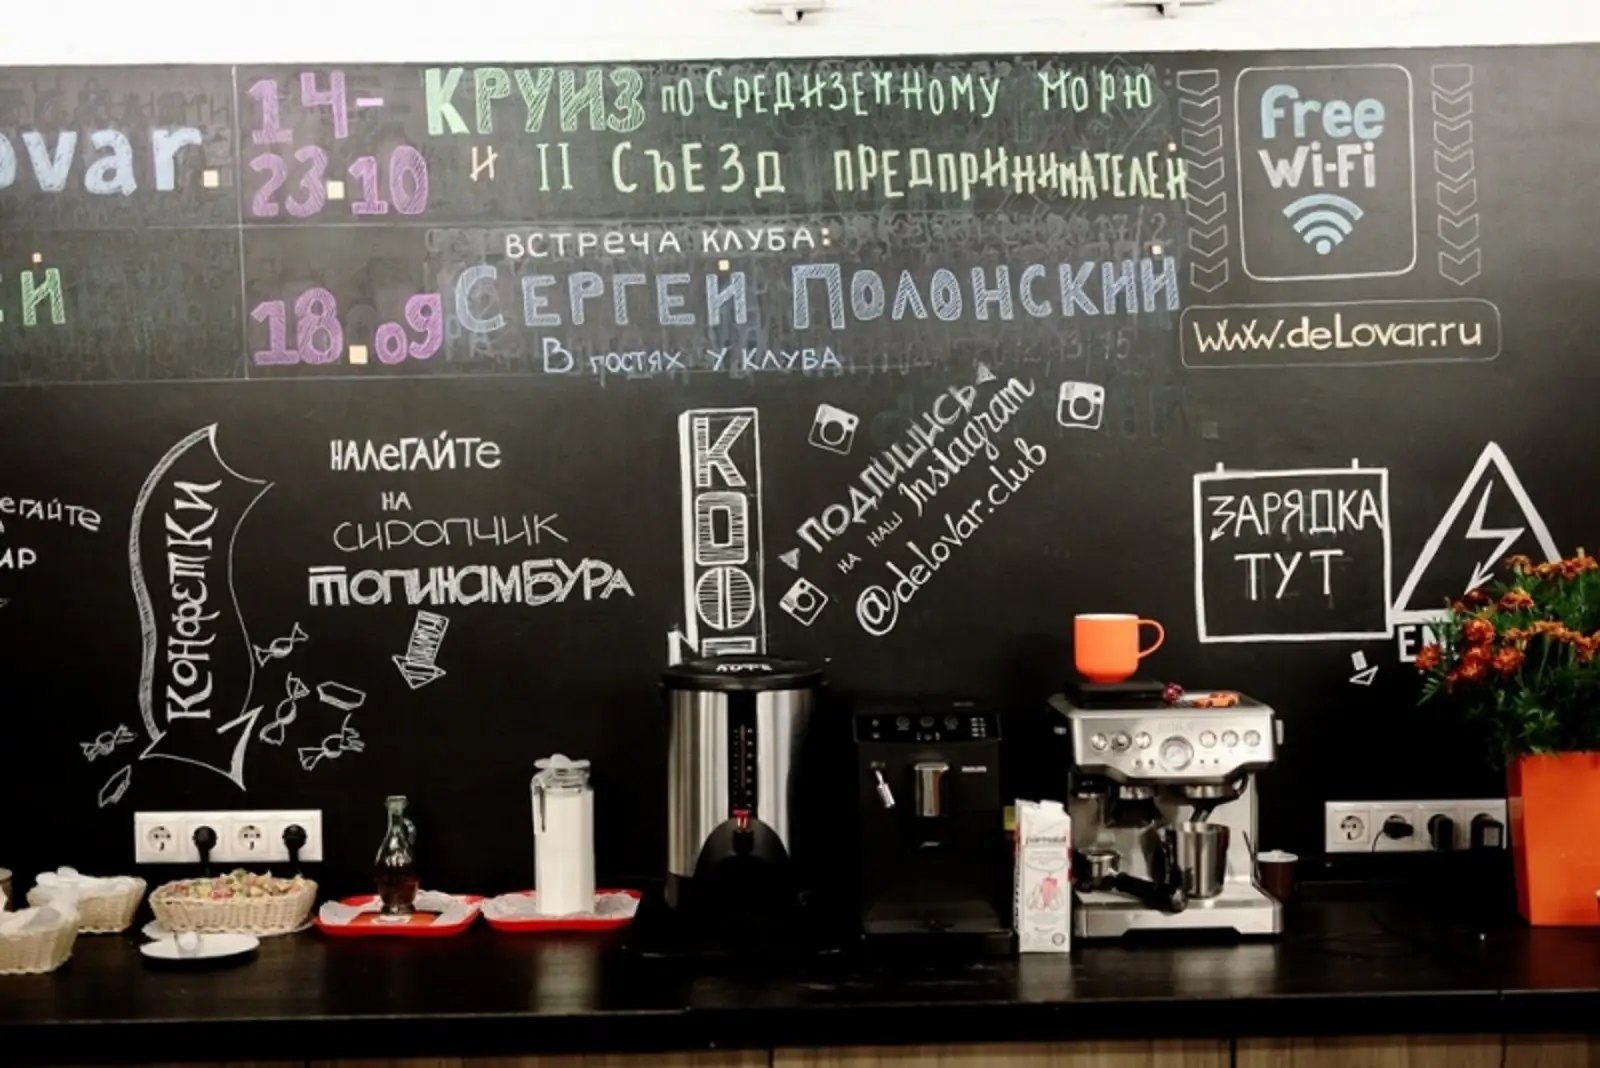 ovar.
14-
23.10
КРУИЗ по СРЕДИЗЕМНОМУ МОРЮ
и II СЪЕЗД ПРЕДПРИНИМАТЕЛЕЙ
Free
Wi-Fi
ЕЙ
18.09
ВСТРЕЧА КЛУБА:
СЕРГЕЙ ПОЛОНСКИЙ
В гостях у клуба
www.deLovar.ru
егайте
ир
КОНФЕТКИ
НАЛЕГАЙТЕ
НА
СИРОПЧИК
ТОПИНАМБУРА
КОФЕ
ПОДПИШИСЬ
НА НАШ Instagram
@delovar.club
ЗАРЯДКА
ТУТ
parmalat